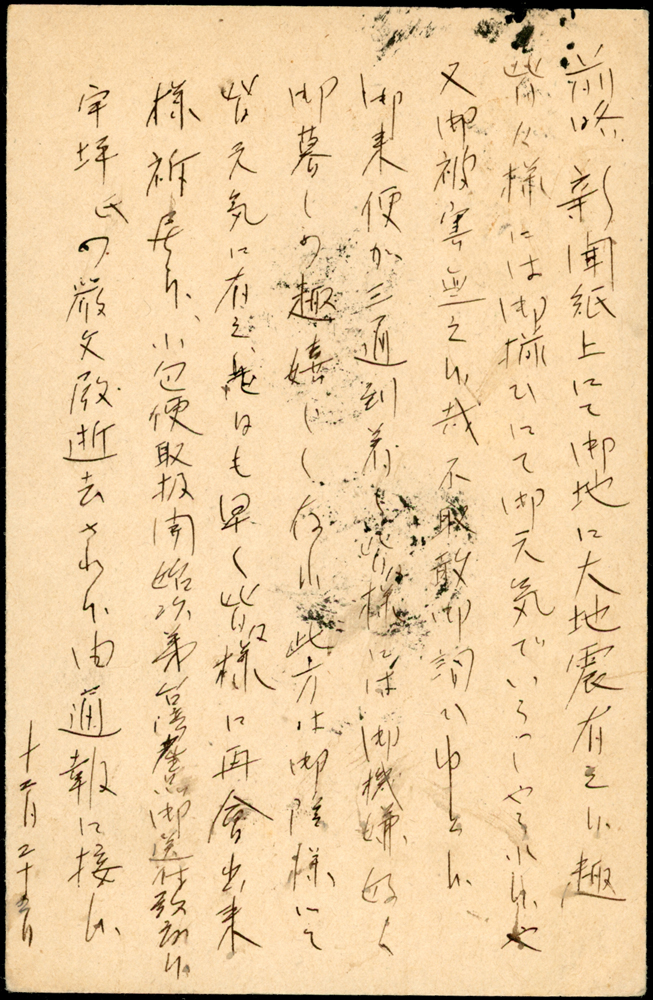 前略 新聞紙上にて御地に大地震有之候趣
皆々様には御揃ひにて御元気でいらっしやられ候や
又御被害無之候哉 不取敢御伺ひ申上候
御来便が三通到着し皆様には御機嫌好く
御暮しの趣嬉しく存候 此方は御陰様にて
皆元気に有之、一日も早く皆様に再會出来
様祈居り、小包便取扱開始次第 御送付致
氏の嚴父殿逝去され候由 通報に接し候
十二月二十三日